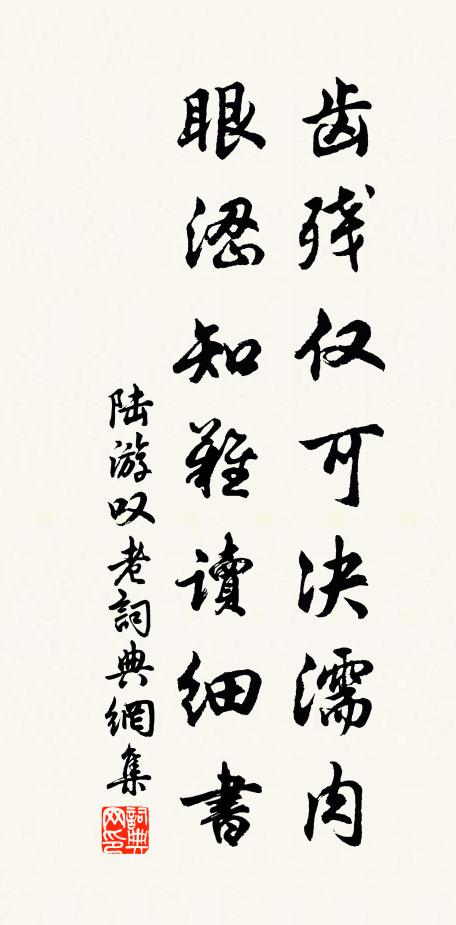 齿残仅可决濡肉
眼涩知难读细書
陆游叹老詞典網集
詞典网印